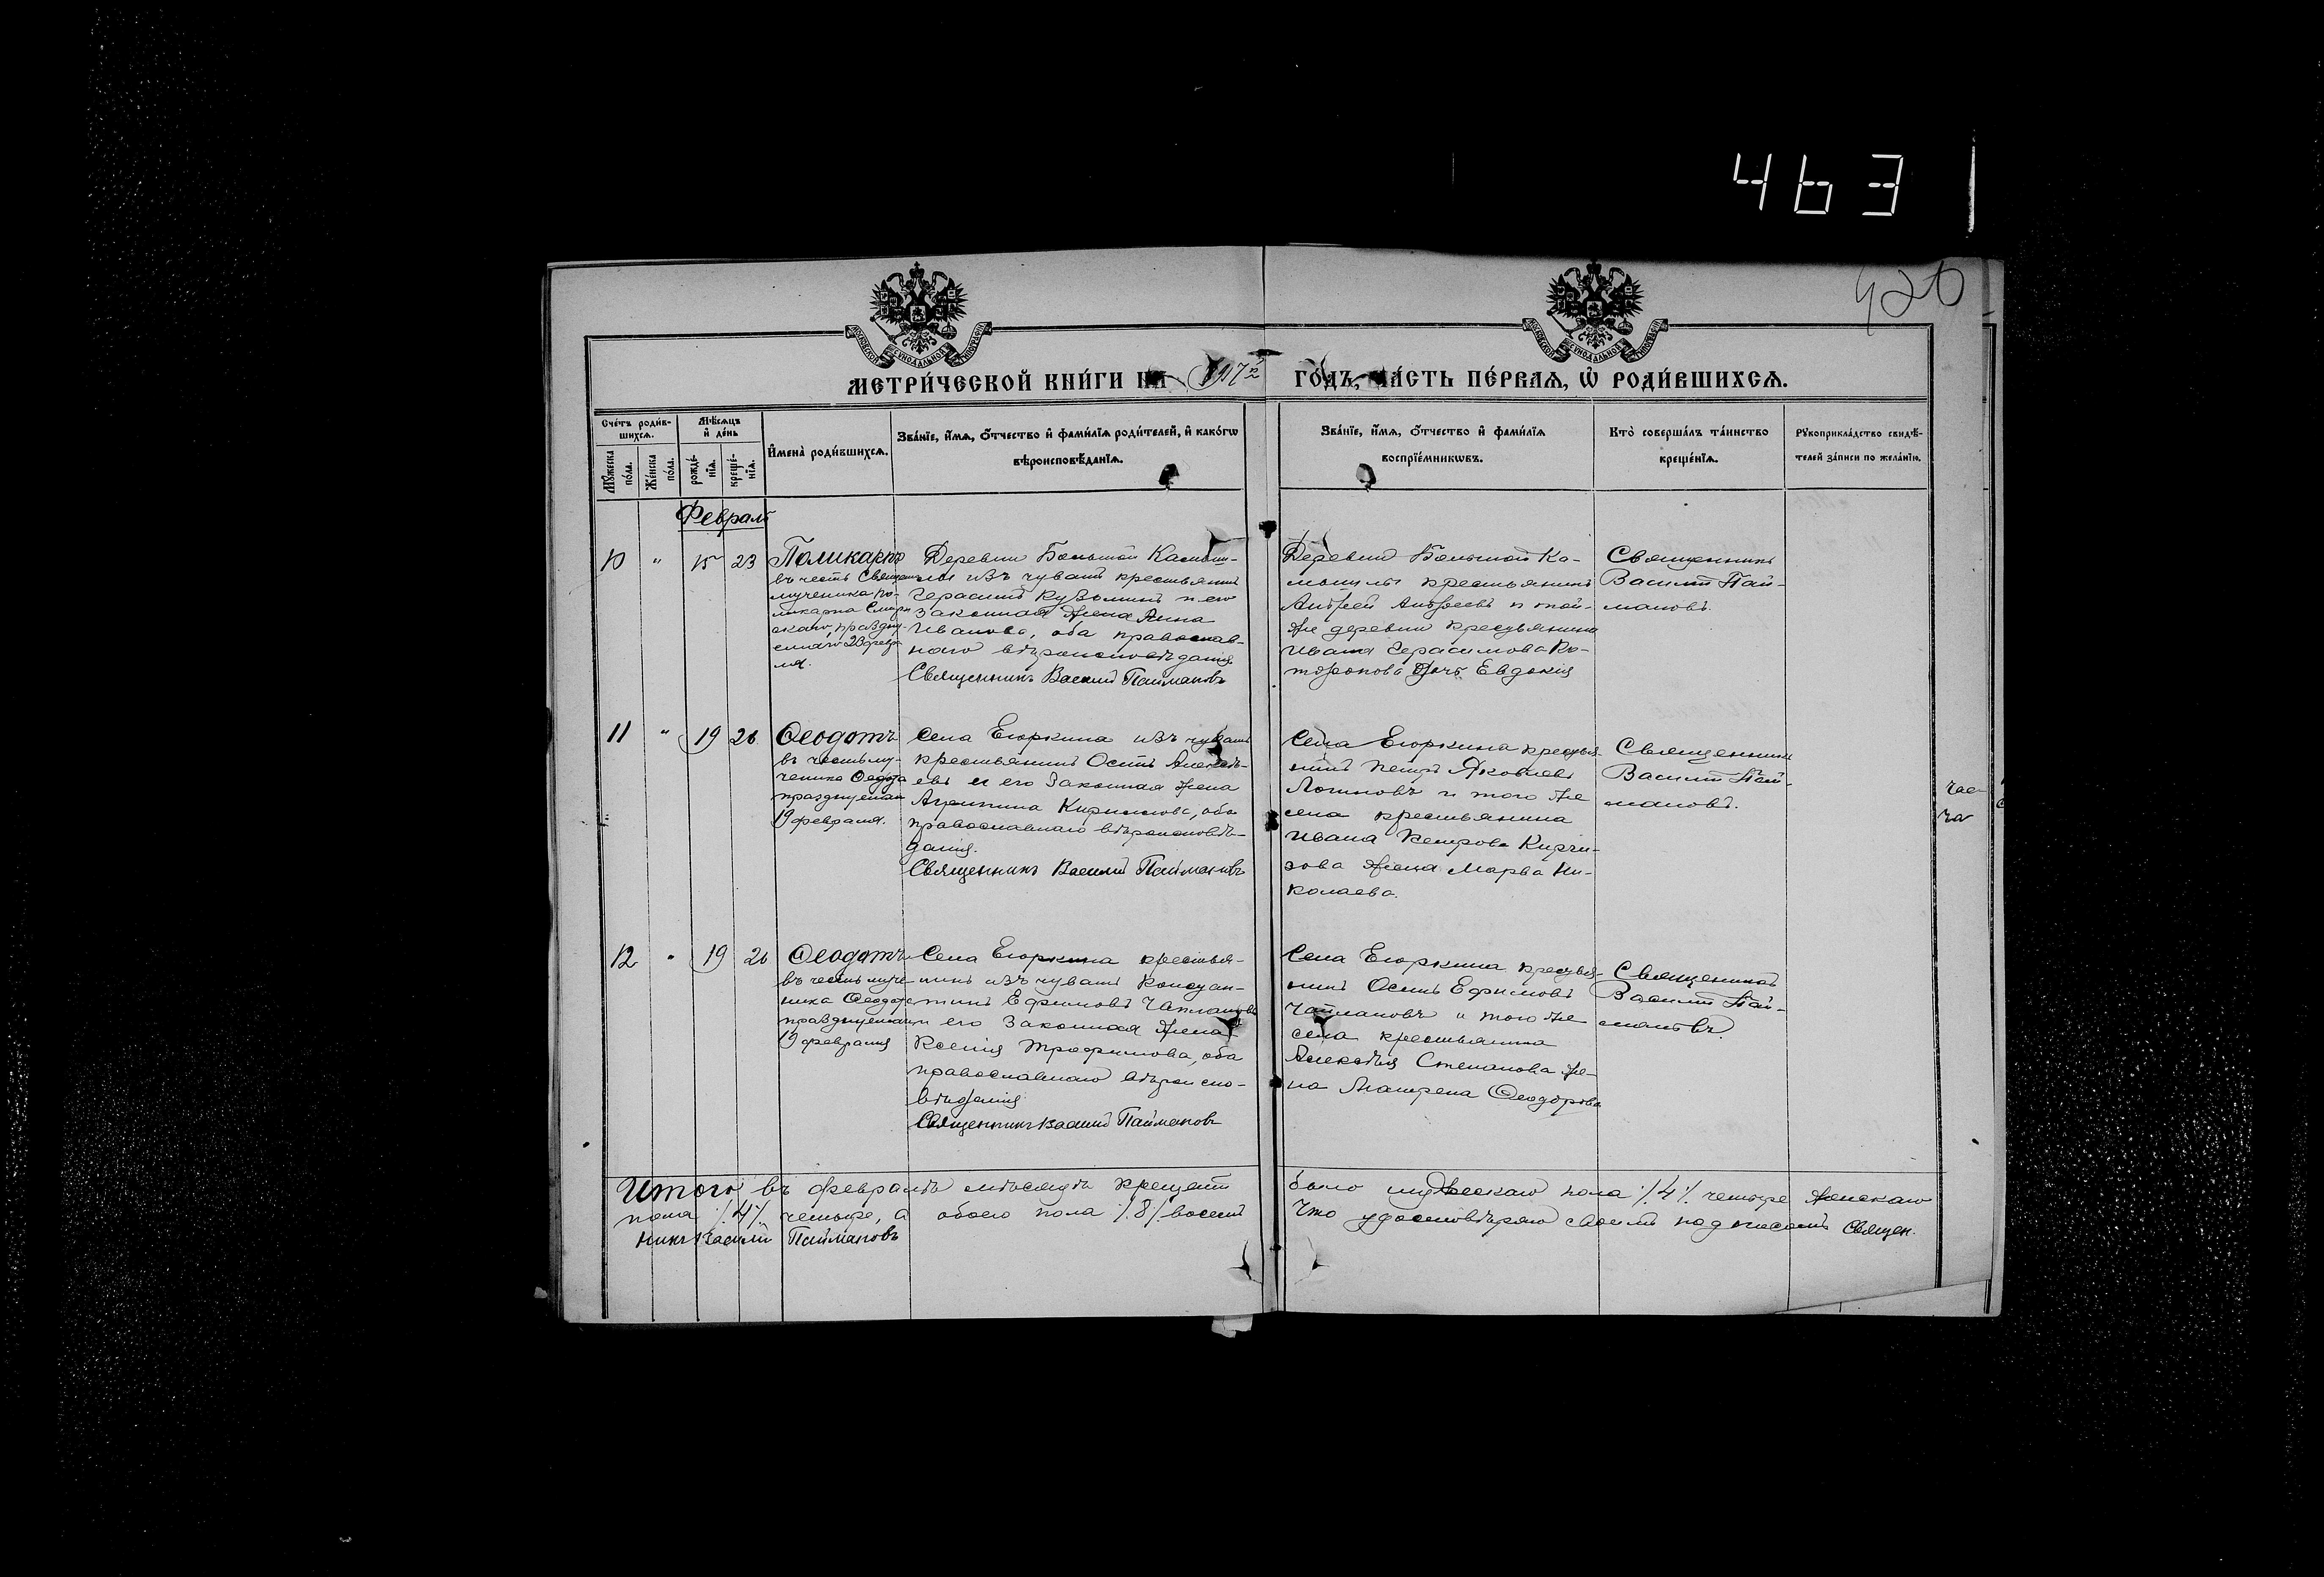 463
420
МОСКОВСКОЙ СУНОДАЛЬНОЙ ТИПОГРАФІИ
МОСКОВСКОЙ СУНОДАЛЬНОЙ ТИПОГРАФІИ
МЕТРИ́ЧЕСКОЙ КНИ́ГИ НА 1917 ГО́ДЪ, ЧА́СТЬ ПЕ́РВАѦ, Ѡ҆ РОДИ́ВШИХСѦ.
Сче́тъ роди́в-
шихсѧ.
Мѣ́сѧцъ
и҆ де́нь
Мꙋ́жеска
по́ла.
Же́нска
по́ла.
рожде́-
нїѧ.
креще́-
нїѧ.
И҆мена̀ роди́вшихсѧ.
Зва́нїе, и҆́мѧ, ѻ҆́тчество и҆ фами́лїѧ роди́телей, и҆ како́гѡ
вѣроисповѣ́данїѧ.
Зва́нїе, и҆́мѧ, ѻ҆́тчество и҆ фами́лїѧ
воспрїе́мникѡвъ.
Кто̀ соверша́лъ та́инство
креще́нїѧ.
Рꙋкоприкла́дство свидѣ́-
телей за́писи по жела́нїю.
Февраль
10 " 15 23
Поликарпъ
въ честь Священно-
мученика По-
ликарпа Смирн
скаго, праздну-
емаго 23 февра
ля.
Деревни Большой Камыш-
лы изъ чувашъ крестьянинъ
Герасимъ Кузьминъ и его
законная жена Анна
Иванова, оба православ-
наго вѣроисповѣданія.
Священникъ Василій Паймаковъ
Деревни Большой Ка-
мышлы крестьянинъ
Андрей Андреевъ и той-
же деревни крестьянина
Ивана Герасимова
дочь Евдокія
Священникъ
Василій Пай-
маковъ.
11 " 19 26
Ѳеодотъ
въ честь му-
ченика Ѳеодота
празднуемаго
19 февраля.
Села Егоркина изъ чувашъ
крестьянинъ Осипъ Алексѣ-
евъ и его законная жена
Агриппина Кириллова, оба
православнаго вѣроисповѣ-
данія.
Священникъ Василій Паймаковъ
Села Егоркина крестья-
нинъ Петръ Яковлевъ
Логиновъ и того же
села крестьянина
Ивана Петрова Кирги-
зова жена Марѳа Ни-
колаева.
Священникъ
Василій Пай-
маковъ.
12 " 19 26
Ѳеодотъ
въ честь муче-
ника Ѳеодота
празднуемаго
19 февраля
Села Егоркина крестья-
нинъ изъ чувашъ Констан-
тинъ Ефимовъ Чаплановъ
и его законная жена
Ксенія Трофимова, оба
православнаго вѣроиспо-
вѣданія
Священникъ Василій Паймаковъ
Села Егоркина крестья-
нинъ Осипъ Ефимовъ
Чаплановъ и того же
села крестьянина
Алексѣя Степанова же-
на Матрена Ѳеодорова
Священникъ
Василій Пай-
маковъ.
Итого въ февралѣ мѣсяцѣ крещеній было мужескаго пола /.4/. четыре женскаго
пола /.4/. четыре, а обоего пола /.8/. восемь Что удостовѣряю своимъ подписомъ Священ.
никъ Василій Паймаковъ